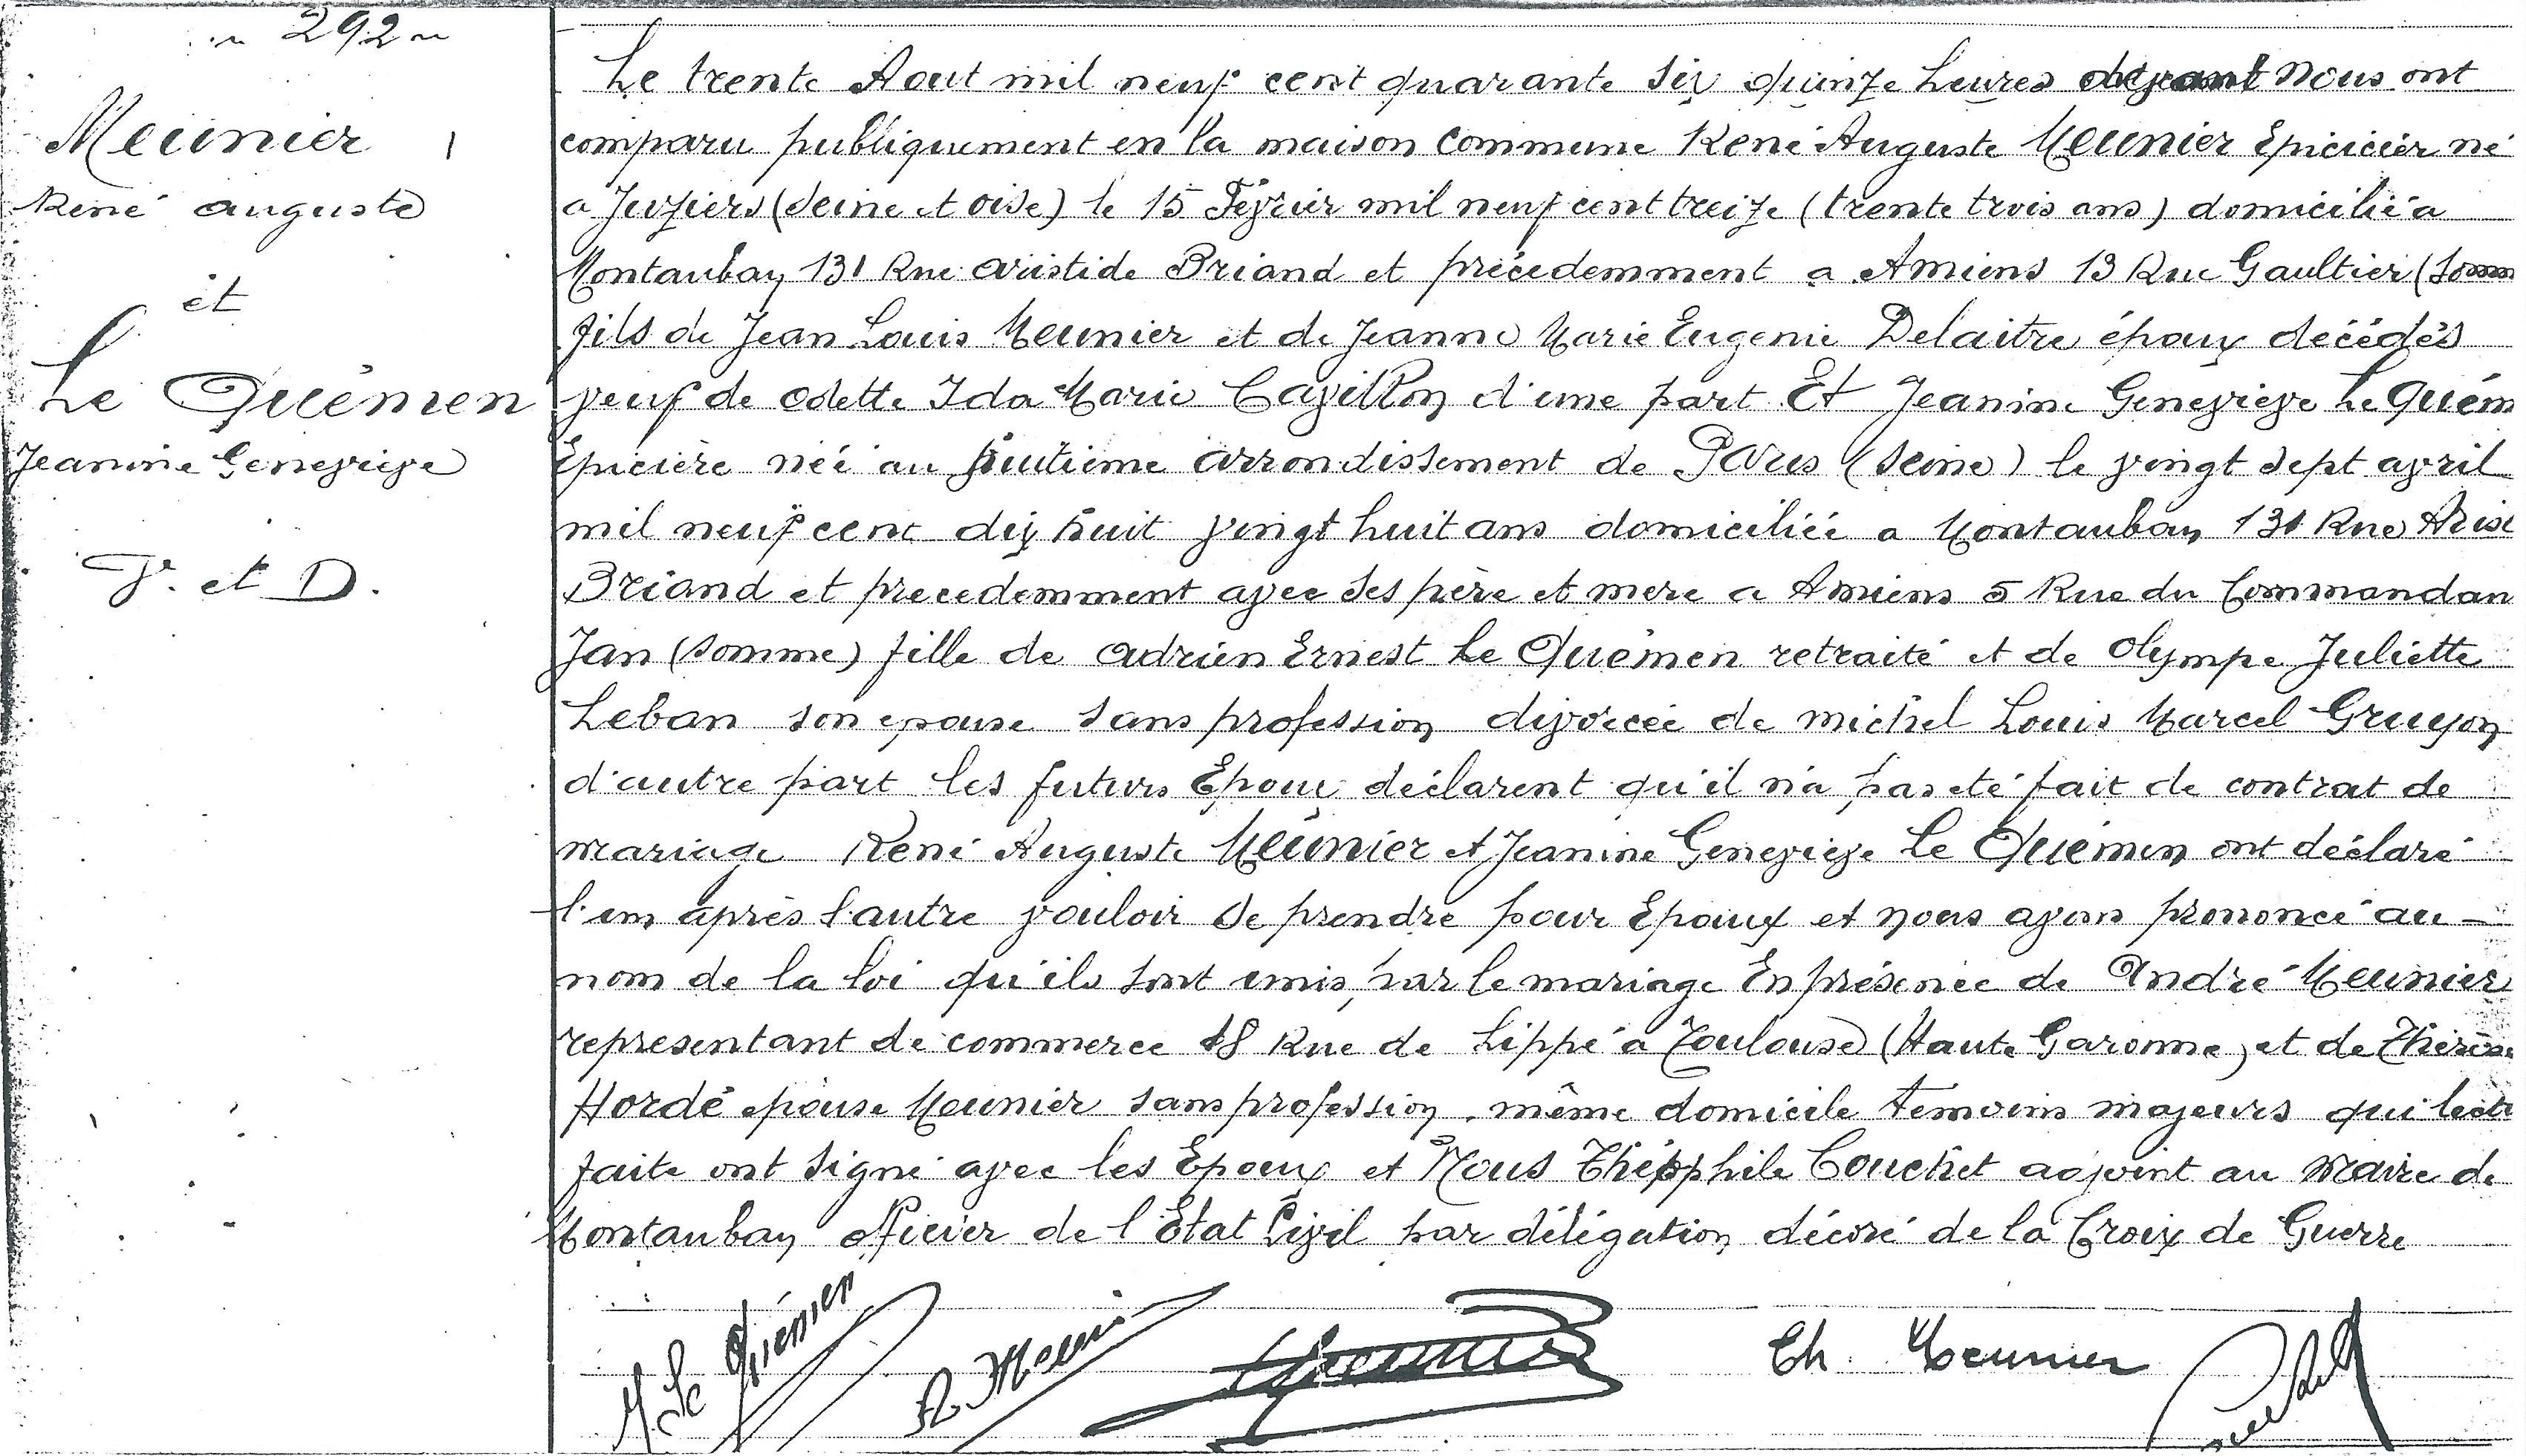 292
Meunier
René auguste
et
Le Quémen
Jeanine Genevieve
V. et D.
Le trente Aout mil neuf cent quarante six quinze heures devant Nous ont
comparu publiquement en la maison commune René Auguste Meunier Epicicier né
a Juziers (Seine et oise) le 15 Février mil neuf cent treize (trente trois ans) domicilié a
Montauban 131 Rue Aristide Briand et précedemment a Amiens 13 Rue Gaultier (Somm
fils de Jean Louis Meunier et de Jeanne Marie Eugenie Delaitre époux décédés
veuf de Odette Ida Marie Cavillon d'une part Et Jeanine Genevieve Le Quém
Epicière née au huitième arrondissement de Paris (Seine) le vingt sept avril
mil neuf cent dix huit vingt huit ans domiciliée a Montauban 131 Rue Aris
Briand et precedemment avec ses père et mere a Amiens 5 Rue du Commandan
Jan (Somme) fille de Adrien Ernest Le Quémen retraité et de Olympe Juliette
Leban son epouse sans profession divorcée de Michel Louis Marcel Gruyon
d'autre part les futurs Epoux déclarent qu'il n'a pas eté fait de contrat de
mariage René Auguste Meunier et Jeanine Genevieve Le Quémen ont déclaré
l'un après l'autre vouloir se prendre pour Epoux et nous avons prononcé au
nom de la loi qu'ils sont unis par le mariage En présence de André Meunier
representant de commerce 18 Rue de Lippé a Toulouse (Haute Garonne) et de Thérèse
Hordé epouse Meunier sans profession même domicile temoins majeurs qui lect
faite ont signé avec les Epoux et Nous Théophile Couchet adjoint au Maire de
Montauban officier de l'Etat Civil par délégation décoré de la Croix de Guerre
J. Le Quémen
R. Meunier
Th. Meunier